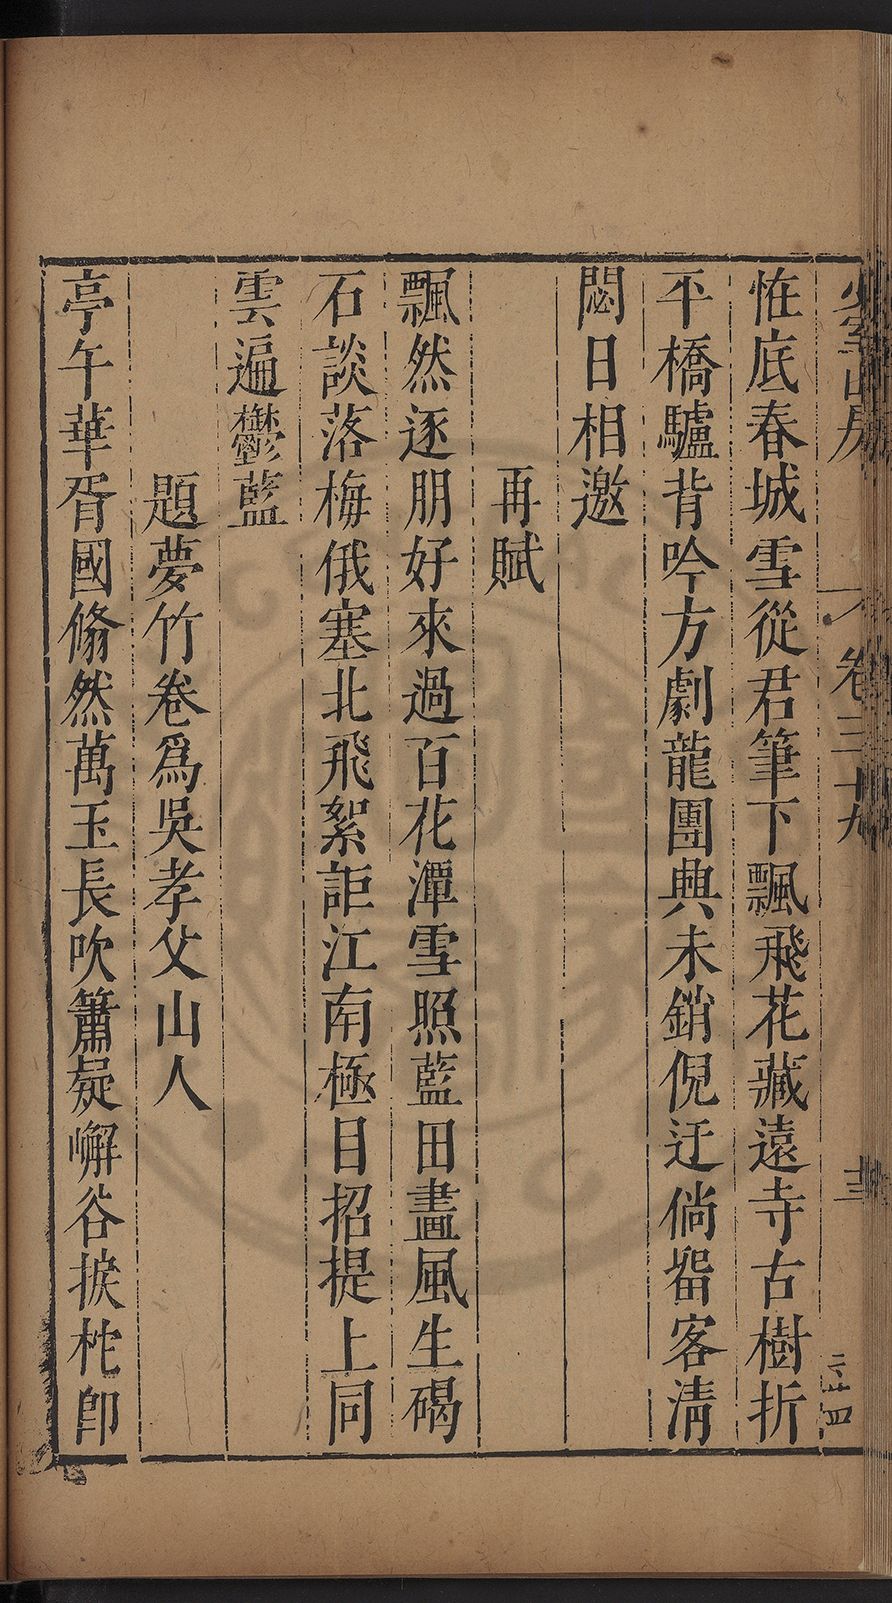 恠底春城雪從君筆下飄飛花藏遠寺古樹折
平橋驢背吟方劇龍團興未銷倪迂倘畱客清
閟日相邀
再賦
飄然逐朋好來過百花潭雪照藍田畫風生碣
石談落梅俄塞北飛絮詎江南極目招提上同
雲遍鬱藍
題夢竹卷爲吳孝父山人
亭午華胥國翛然萬玉長吹簫疑嶰谷捩柁卽
卷三十九